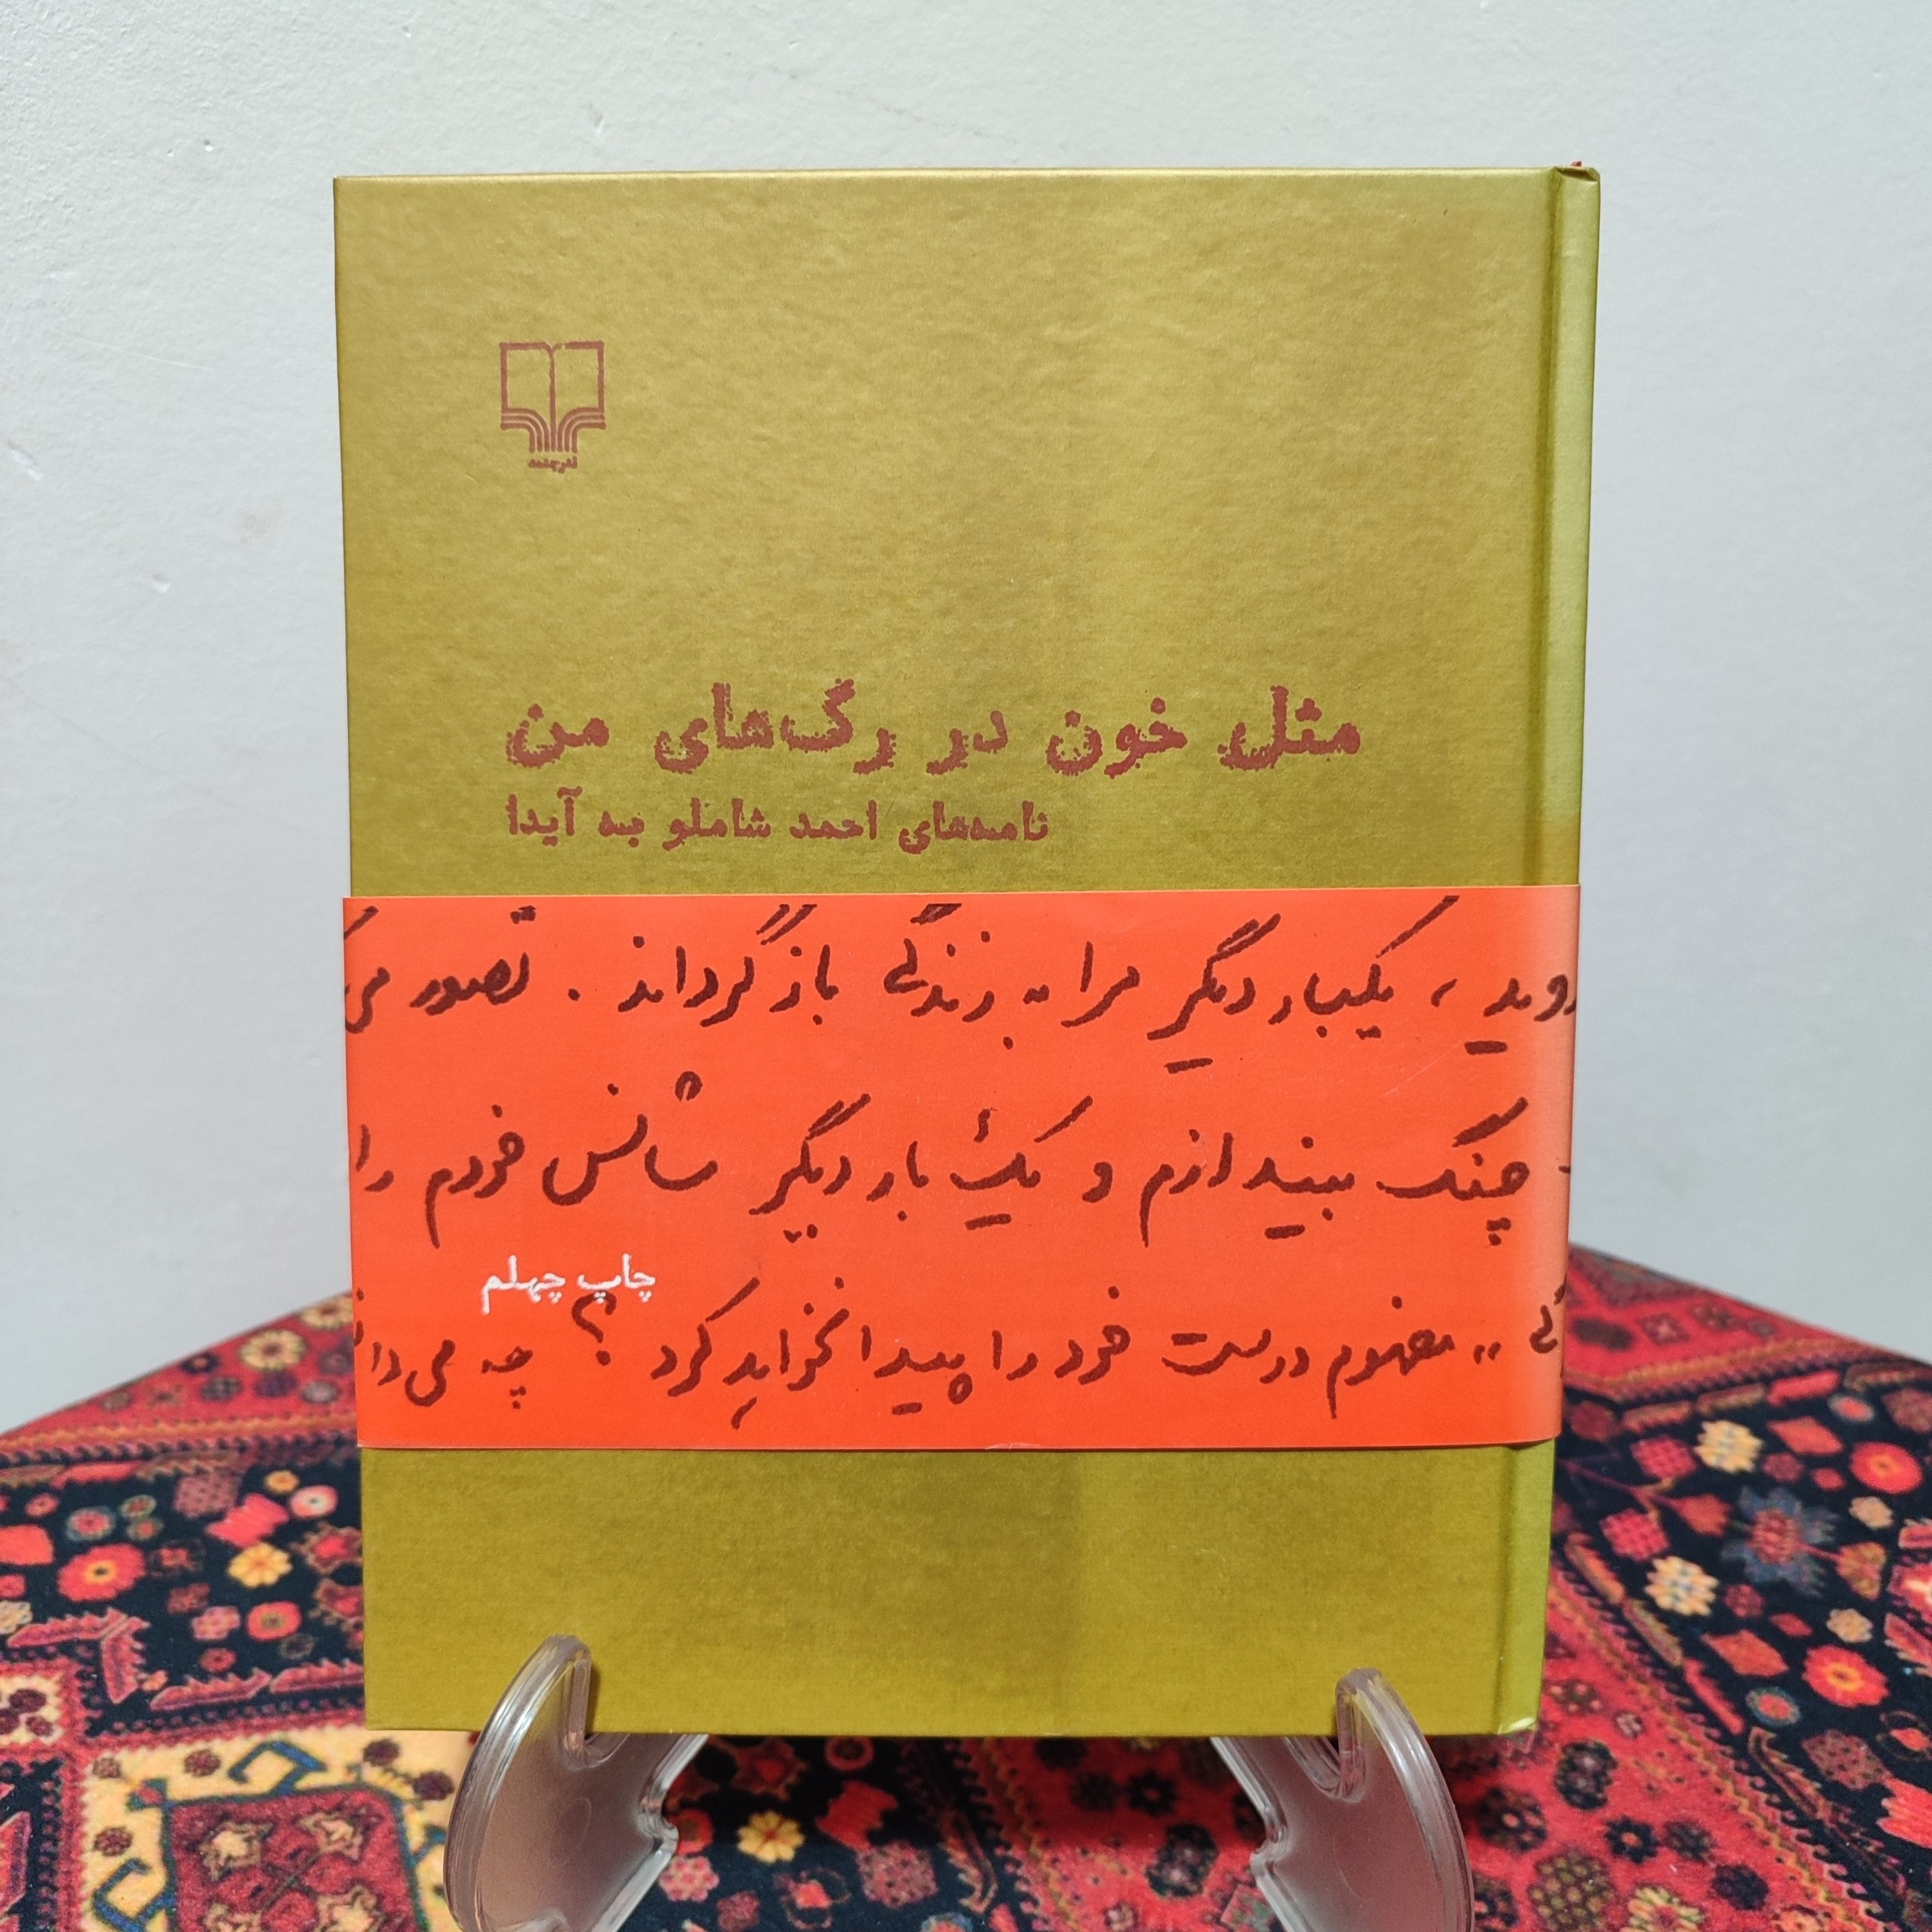 نشرچشمه
مثل خون در رگ‌های من
نامه‌های احمد شاملو به آیدا
روید، یکبار دیگر مرا به زندگی بازگرداند. تصور می
چنگ بیندازم و یک بار دیگر شانس خودم را
چاپ چهلم
مفهوم درست خود را پیدا نخواهد کرد؟ چه می‌دا